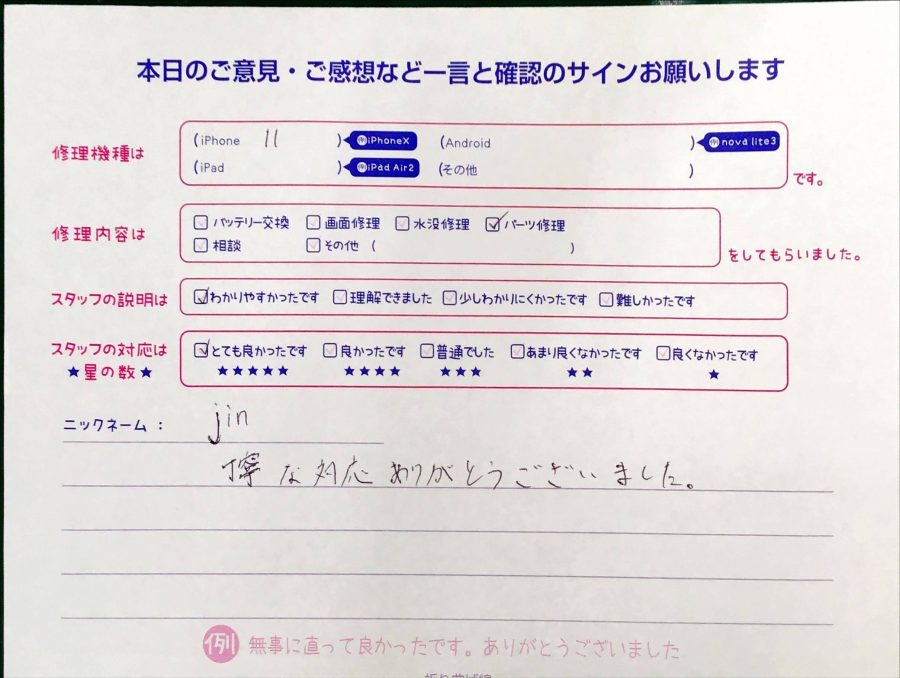 本日のご意見・ご感想など一言と確認のサインお願いします
修理機種は
(iPhone 11 ) iPhoneX (Android ) nova lite3
(iPad ) iPad Air2 (その他 )
です。
修理内容は
バッテリー交換 画面修理 水没修理 パーツ修理
相談 その他 ( )
をしてもらいました。
スタッフの説明は
わかりやすかったです 理解できました 少しわかりにくかったです 難しかったです
スタッフの対応は
★星の数★
とても良かったです 良かったです 普通でした あまり良くなかったです 良くなかったです
★★★★★ ★★★★ ★★★ ★★ ★
ニックネーム： jin
丁寧な対応ありがとうございました。
例 無事に直って良かったです。ありがとうございました